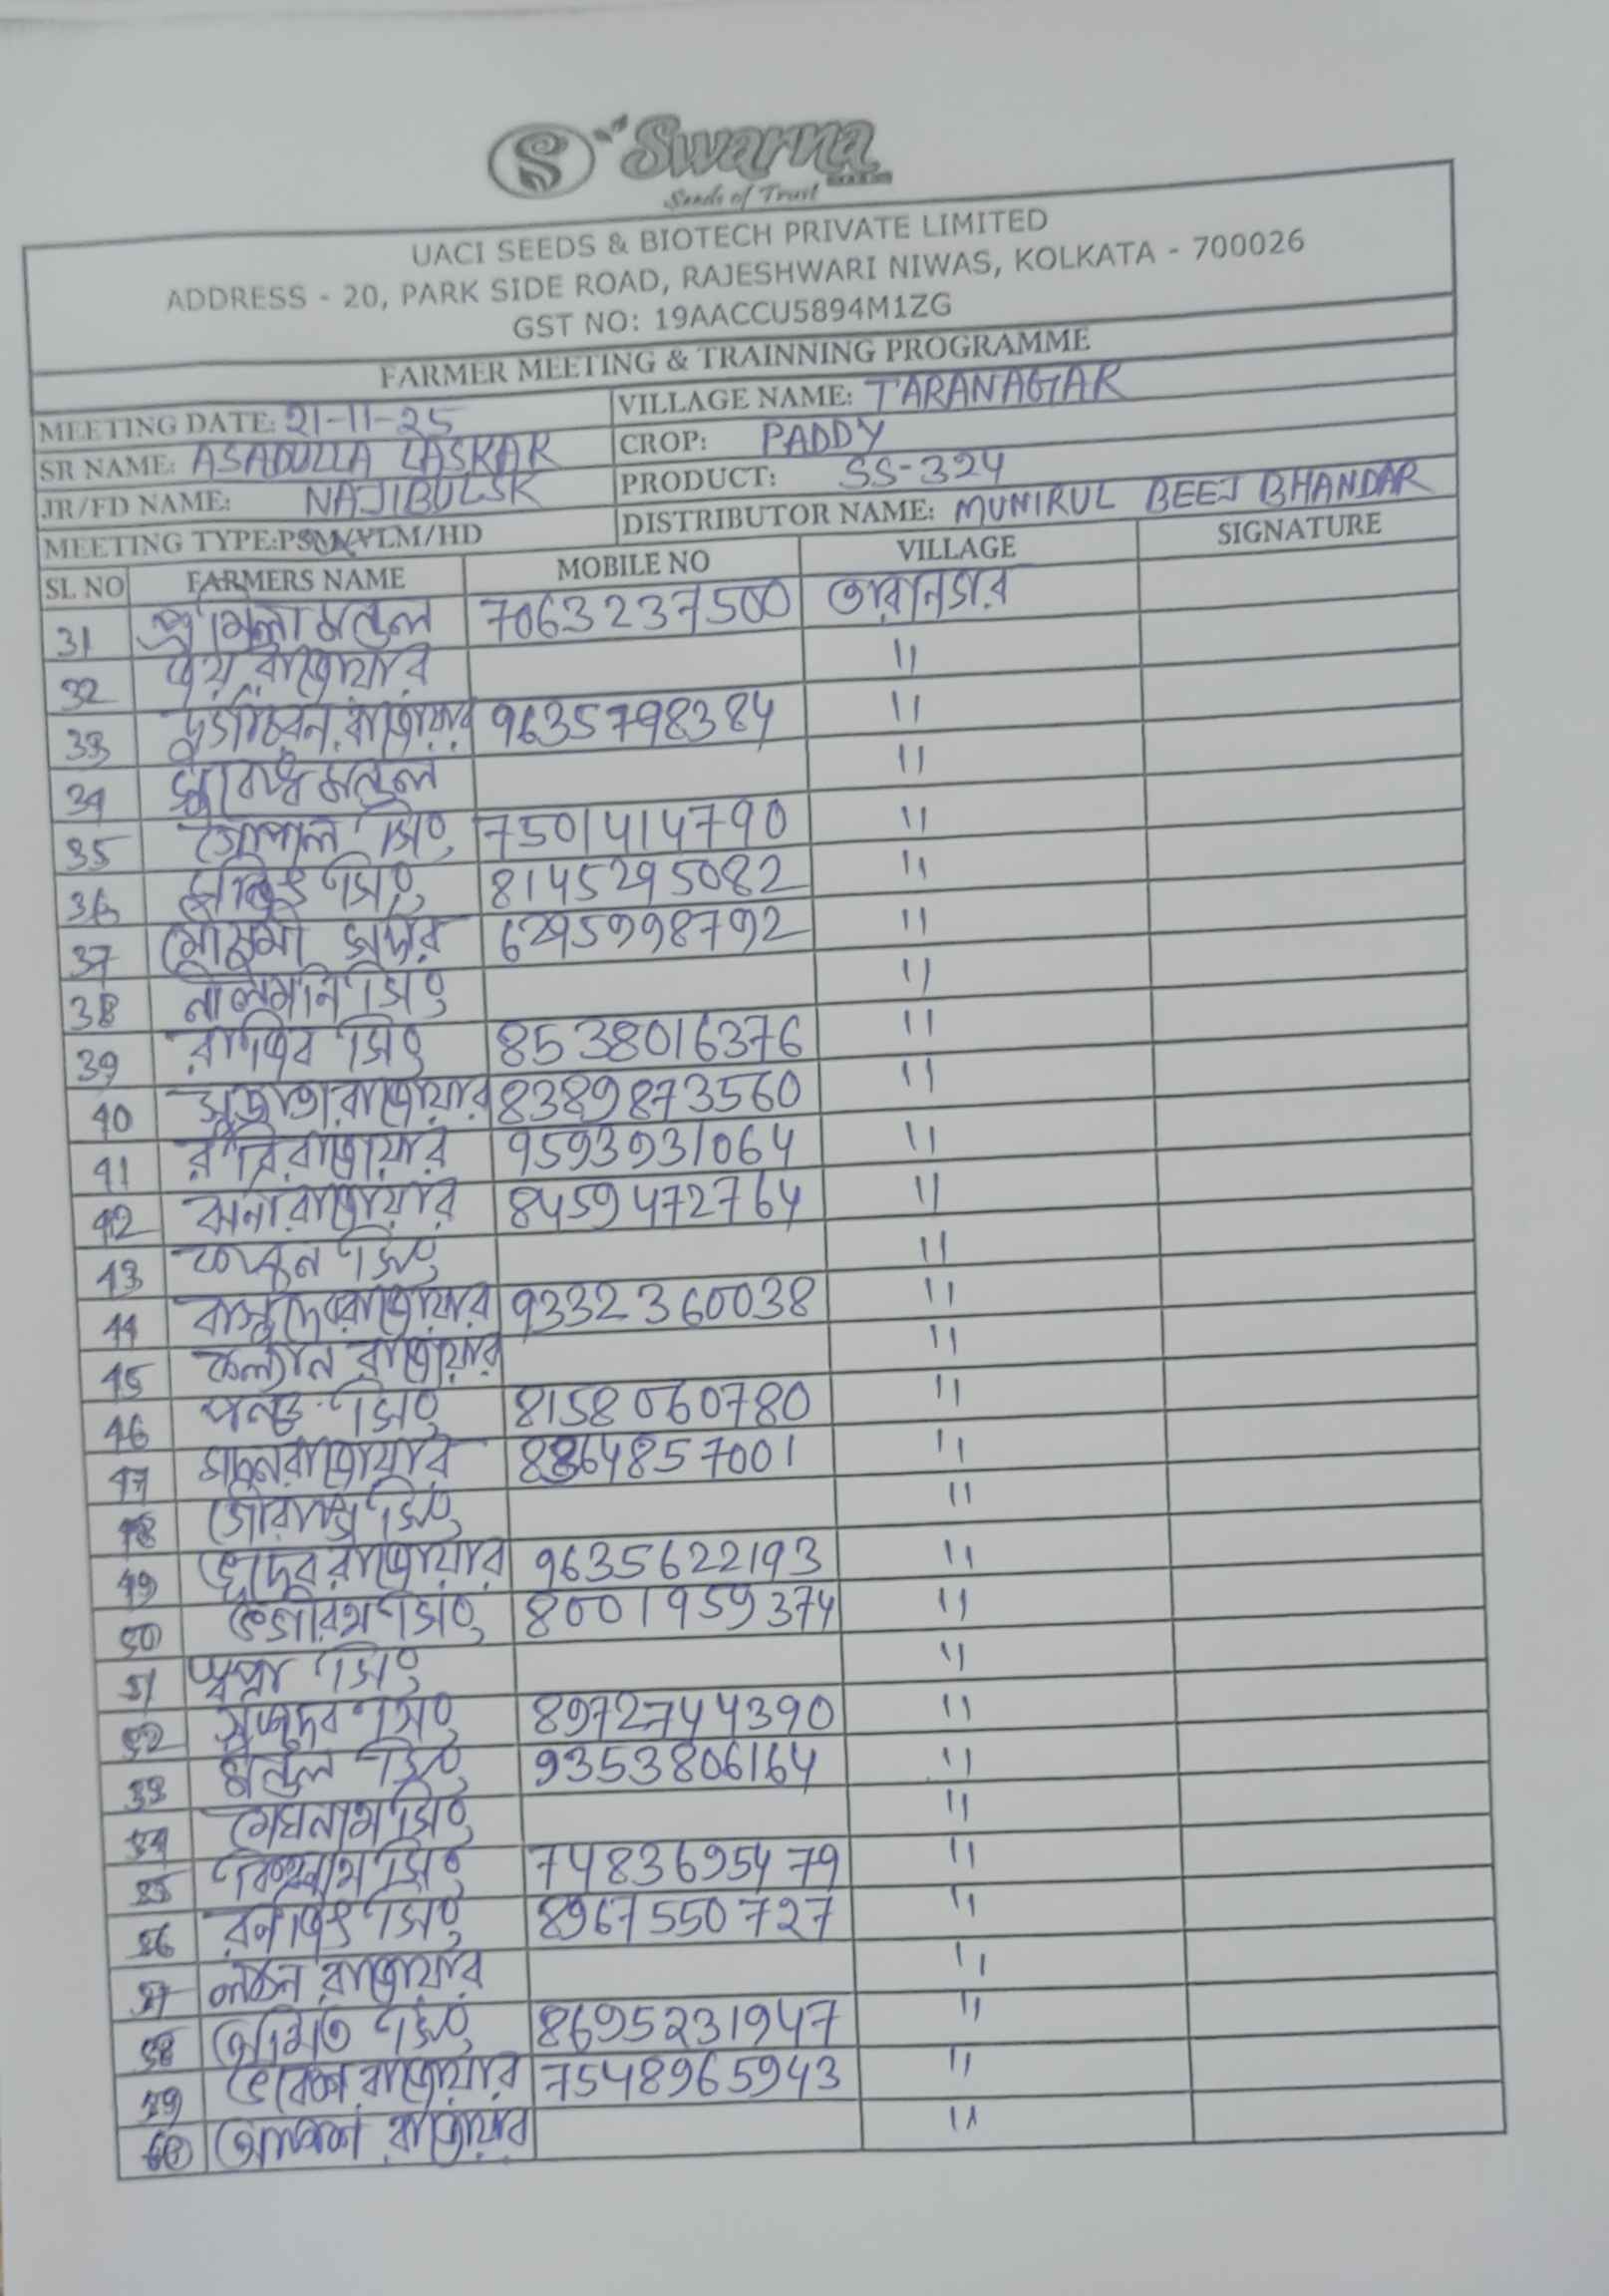 Swarna
Seeds of Trust
UACI SEEDS & BIOTECH PRIVATE LIMITED
ADDRESS - 20, PARK SIDE ROAD, RAJESHWARI NIWAS, KOLKATA - 700026
GST NO: 19AACCU5894M1ZG
FARMER MEETING & TRAINNING PROGRAMME
MEETING DATE: 21-11-25 VILLAGE NAME: TARANAGAR
SR NAME: ASADULLA LASKAR CROP: PADDY
JR/FD NAME: NAJIBUL SK PRODUCT: SS-324
MEETING TYPE:PSM/VLM/HD DISTRIBUTOR NAME: MUNIRUL BEEJ BHANDAR
SL NO FARMERS NAME MOBILE NO VILLAGE SIGNATURE
31 প্রমিলা মন্ডল 7063237500 তারানগর
32 রাজোয়ার "
33 রাজোয়ার 9635798384 "
34 মন্ডল "
35 গোপাল সিং 7501414790 "
36 সিং 8145295082 "
37 মৌসুমী সর্দার 6295998792 "
38 নীলমনি সিং "
39 রাজিব সিং 8538016376 "
40 সুজাতা রাজোয়ার 8389873560 "
41 রাজোয়ার 9593931064 "
42 রাজোয়ার 8459472764 "
43 সিং "
44 বাসুদেব রাজোয়ার 9332360038 "
45 কল্যান রাজোয়ার "
46 সিং 8158060780 "
47 রাজোয়ার 8864857001 "
48 গৌরাঙ্গ সিং "
49 ভূদেব রাজোয়ার 9635622193 "
50 ভগীরথ সিং 8001959374 "
51 স্বপ্না সিং "
52 সিং 8972744390 "
53 মন্ডল সিং 9353806164 "
54 মেঘনাথ সিং "
55 বিশ্বনাথ সিং 7483695479 "
56 রনজিৎ সিং 8967550727 "
57 রাজোয়ার "
58 অমিত সিং 8695231947 "
59 ভবেশ রাজোয়ার 7548965943 "
60 আকাশ রাজোয়ার "